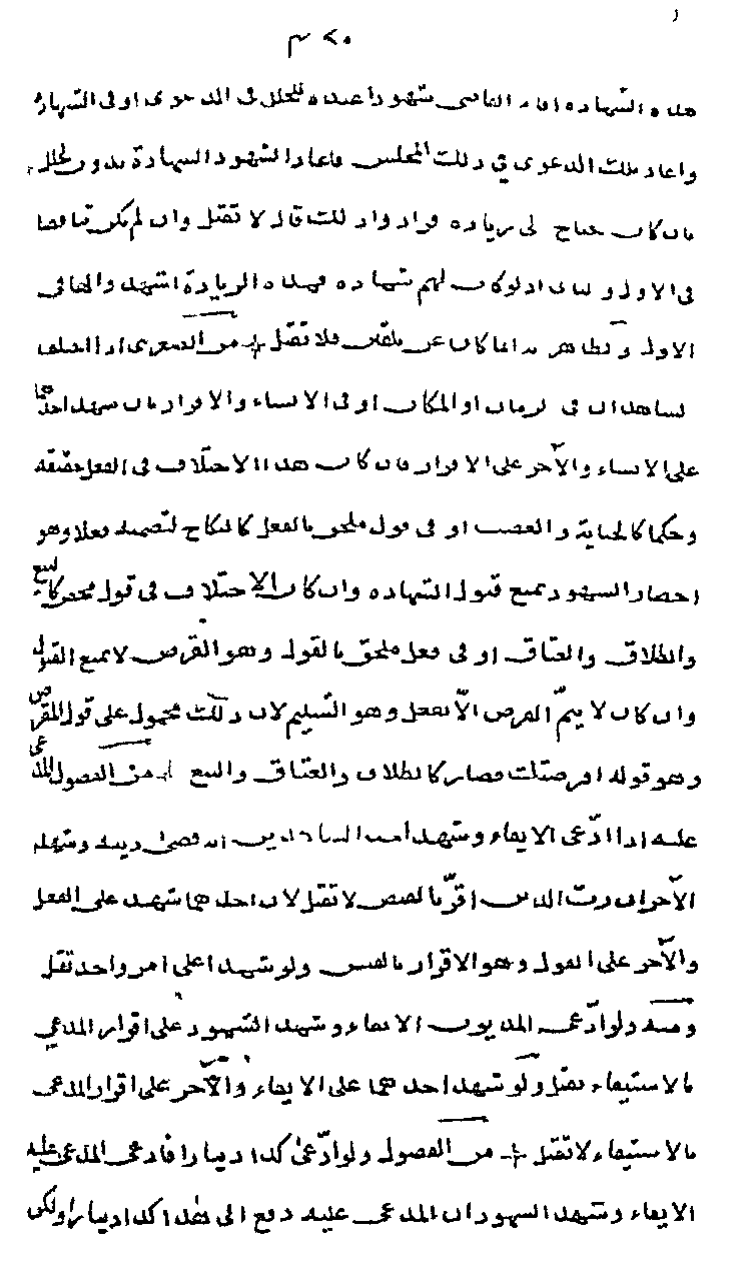 هذه الشهادة اقام القاضى شهودا عنده للخلل فى الدعوى او فى الشهادة
واعاد تلك الدعوى فى ذلك المجلس فاعاد الشهود الشهادة بدون الخلل
فان كان يحتاج الى زيادة فزادوا ذلك قال لا تقبل وان لم يكن تناقضا
فى الاول
الاول والظاهر هذا انما كان عن تلقين فلا تقبل من الصغرى اذا اختلف
الشاهدان فى الزمان او المكان او فى الانشاء والاقرار بان شهد احدهما
على الانشاء والآخر على الاقرار فان كان هذا الاختلاف فى الفعل حقيقة
وحكما كالجناية والغصب او فى قول ملحق بالفعل كالنكاح لتضمنه فعلا وهو
احضار الشهود يمنع قبول الشهادة وان كان الاختلاف فى قول محض كالبيع
والطلاق والعتاق او فى فعل ملحق بالقول وهو القرض لا يمنع القبول
وان كان لا يتمّ القرض الّا بالفعل وهو التسليم لان ذلك محمول على قول المقرض
وهو قوله اقرضتك فصار كالطلاق والعتاق والبيع من الفصول المدعى
عليه اذا ادّعى الايفاء وشهد احد الشاهدين انه قضى دينه وشهد
الآخر ان ربّ الدين اقرّ بالقبض لا تقبل لان احدهما شهد على الفعل
والآخر على القول وهو الاقرار بالقبض ولو شهدا على امر واحد تقبل
وفيه ولو ادّعى المديون الايفاء وشهد الشهود على اقرار المدعى
بالاستيفاء تقبل ولو شهد احدهما على الايفاء والآخر على اقرار المدعى
بالاستيفاء لا تقبل من الفصول ولو ادّعى كذا دينارا فادعى المدعى عليه
الايفاء وشهد الشهود ان المدعى عليه دفع الى هذا كذا دينارا ولكن